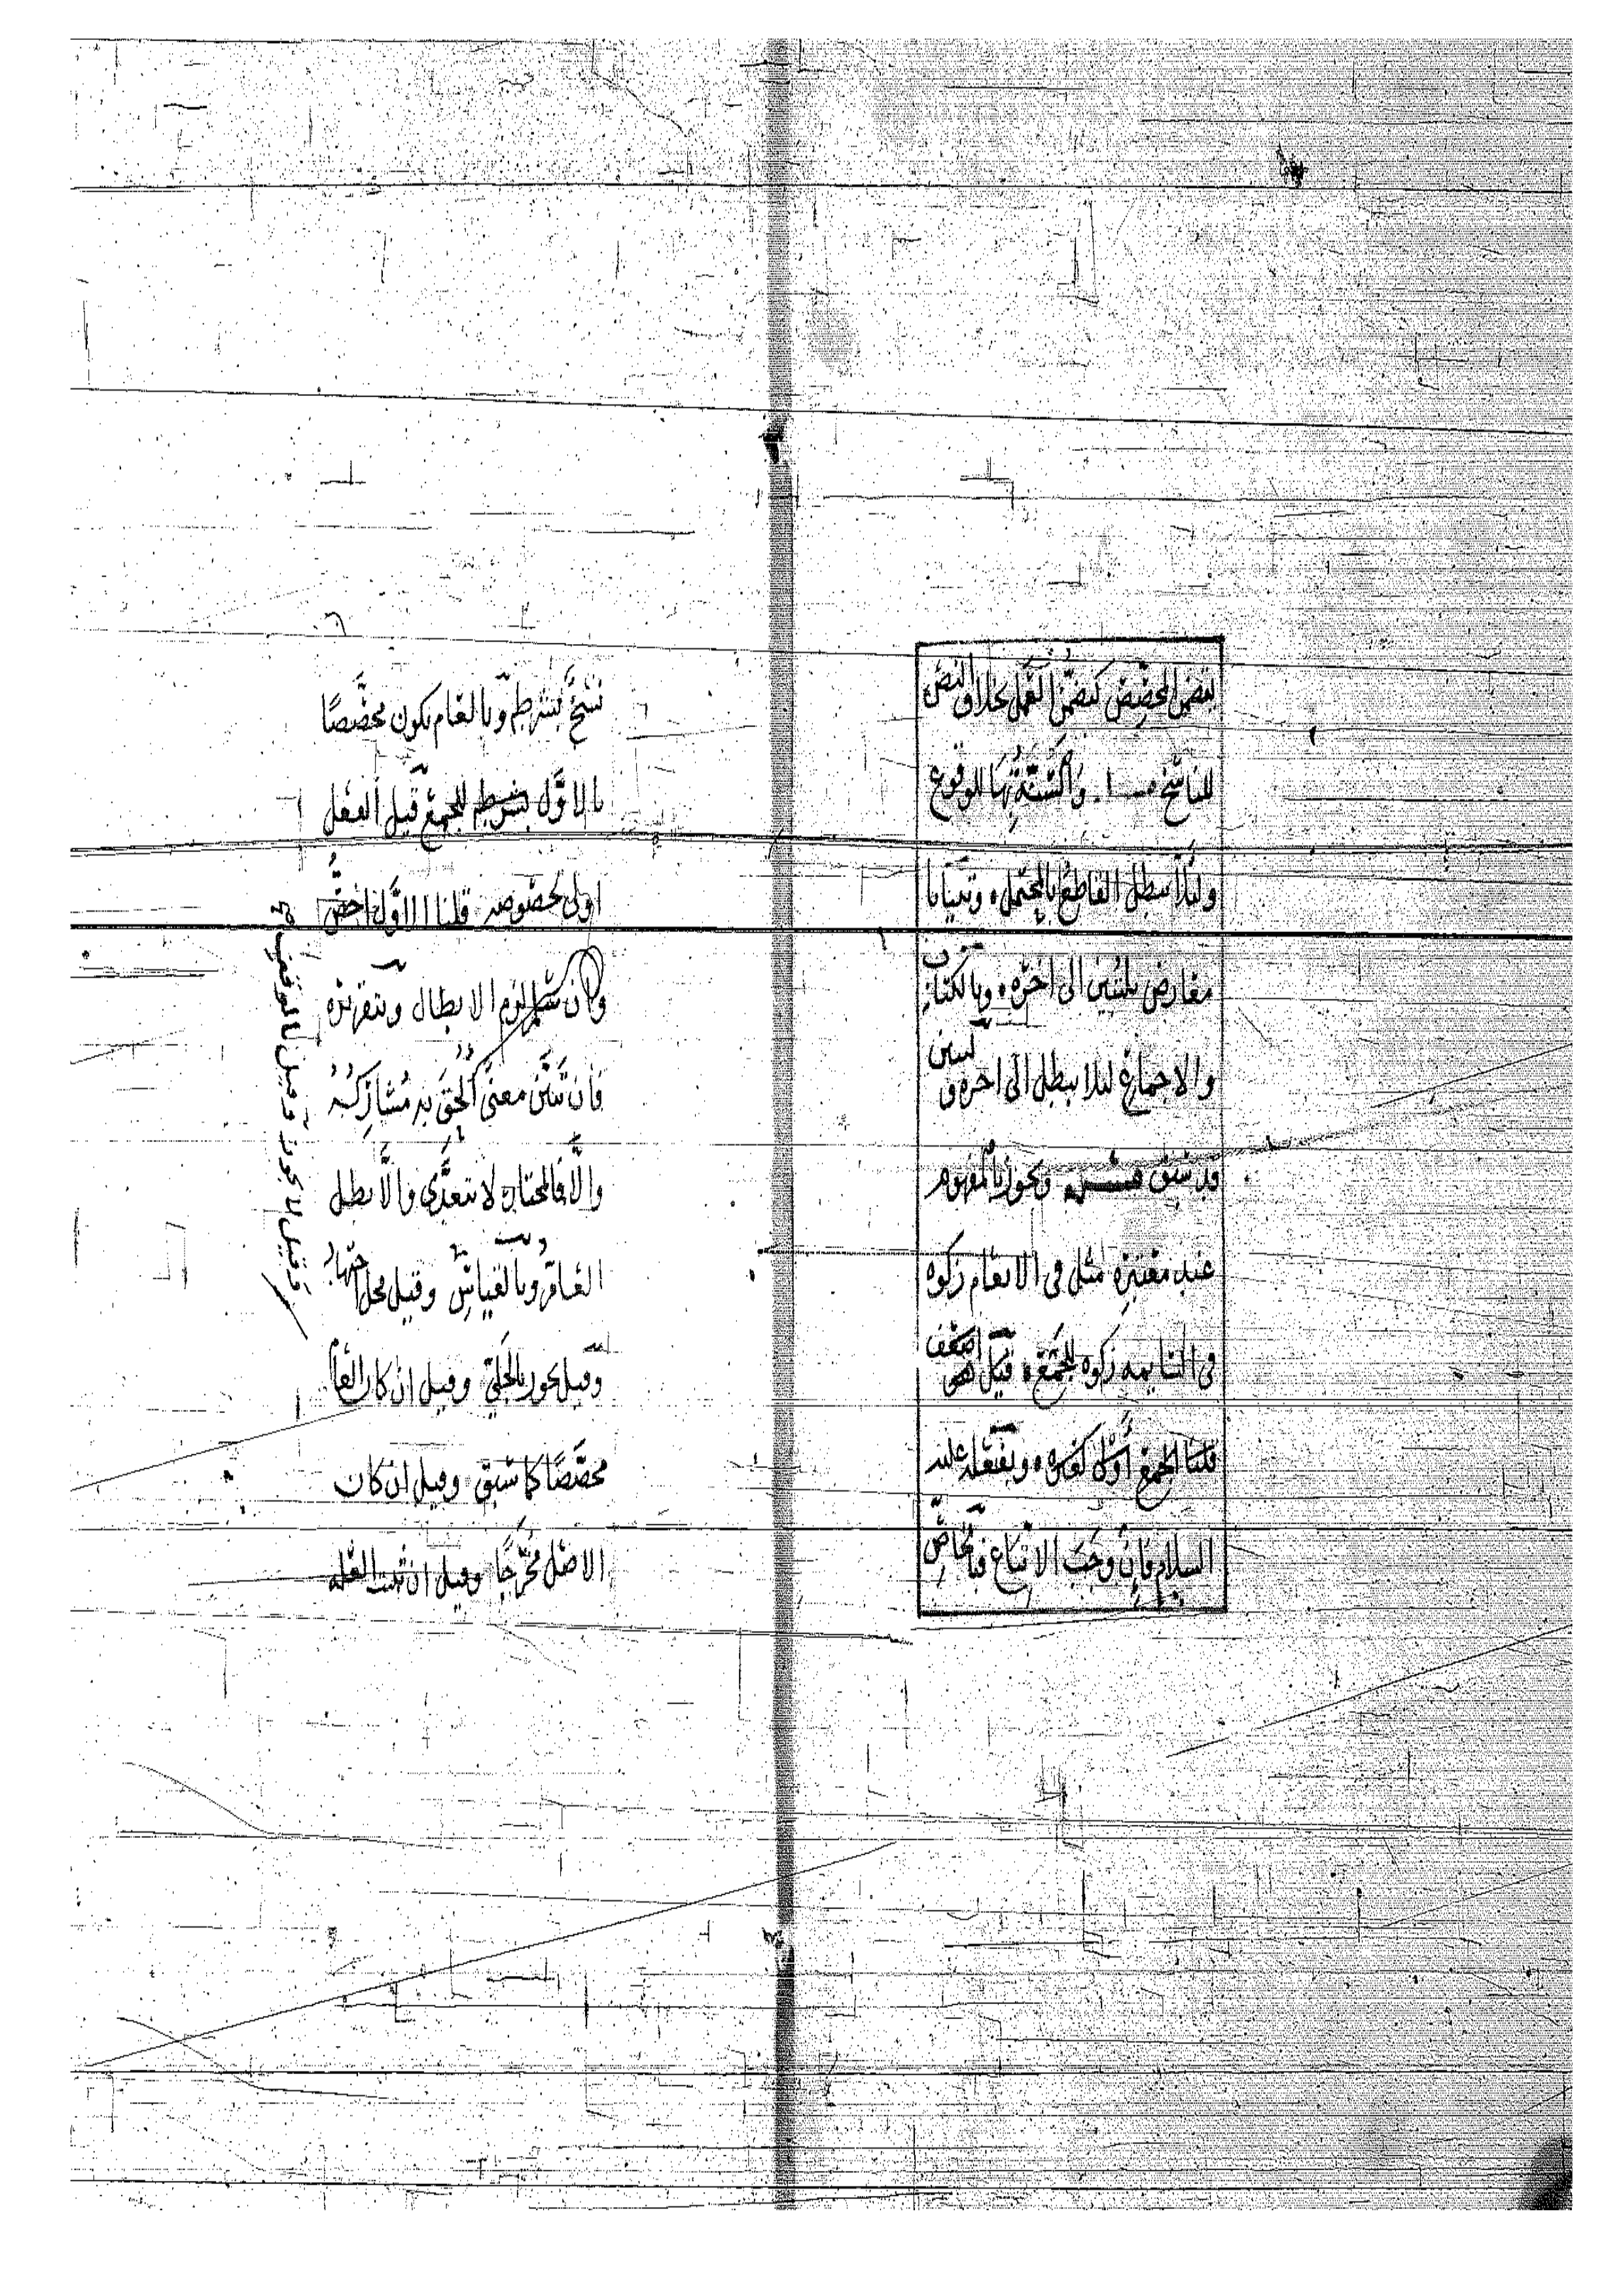 لتضمن المخصص كتضمن العمل بخلاف النص
للناسخ والسنة بها للوقوع
ولئلا يبطل القاطع بالمحتمل وتبيانا
معارض بلتبين الى اخره وبالكتاب
والاجماع لئلا يبطل الى اخره لتبين و
قد سبق ويجوز بالمفهوم
عند معتبره مثل فى الانعام زكوه
فى السايمه زكوه للجمع قيل اضعف
قلنا الجمع أولى كغيره وبفعله عليه
السلام فإن وجب الاتباع فبخاص
نسخ بشرطه وبالعام يكون مخصصًا
بالاوَّل بشرطه للجمع قيل الفعل
اولى لخصوصه قلنا الاوَّل اخصّ
وان سلم لزم الابطال وبتقريره
فان تبيَّن معنًى أُلحق به مُشارِكُهُ
والَّا فالمختار لا يتعدَّى والَّا بطل
العام وبالقياس وقيل محل اجتهاد
وقيل يجوز بالجلي وقيل ان كان العام
مخصَّصًا كما سبق وقيل ان كان
الاصل مُخرَجًا وقيل ان ثبتت العله
وقيل لا يجوز وقيل بالوقف صح